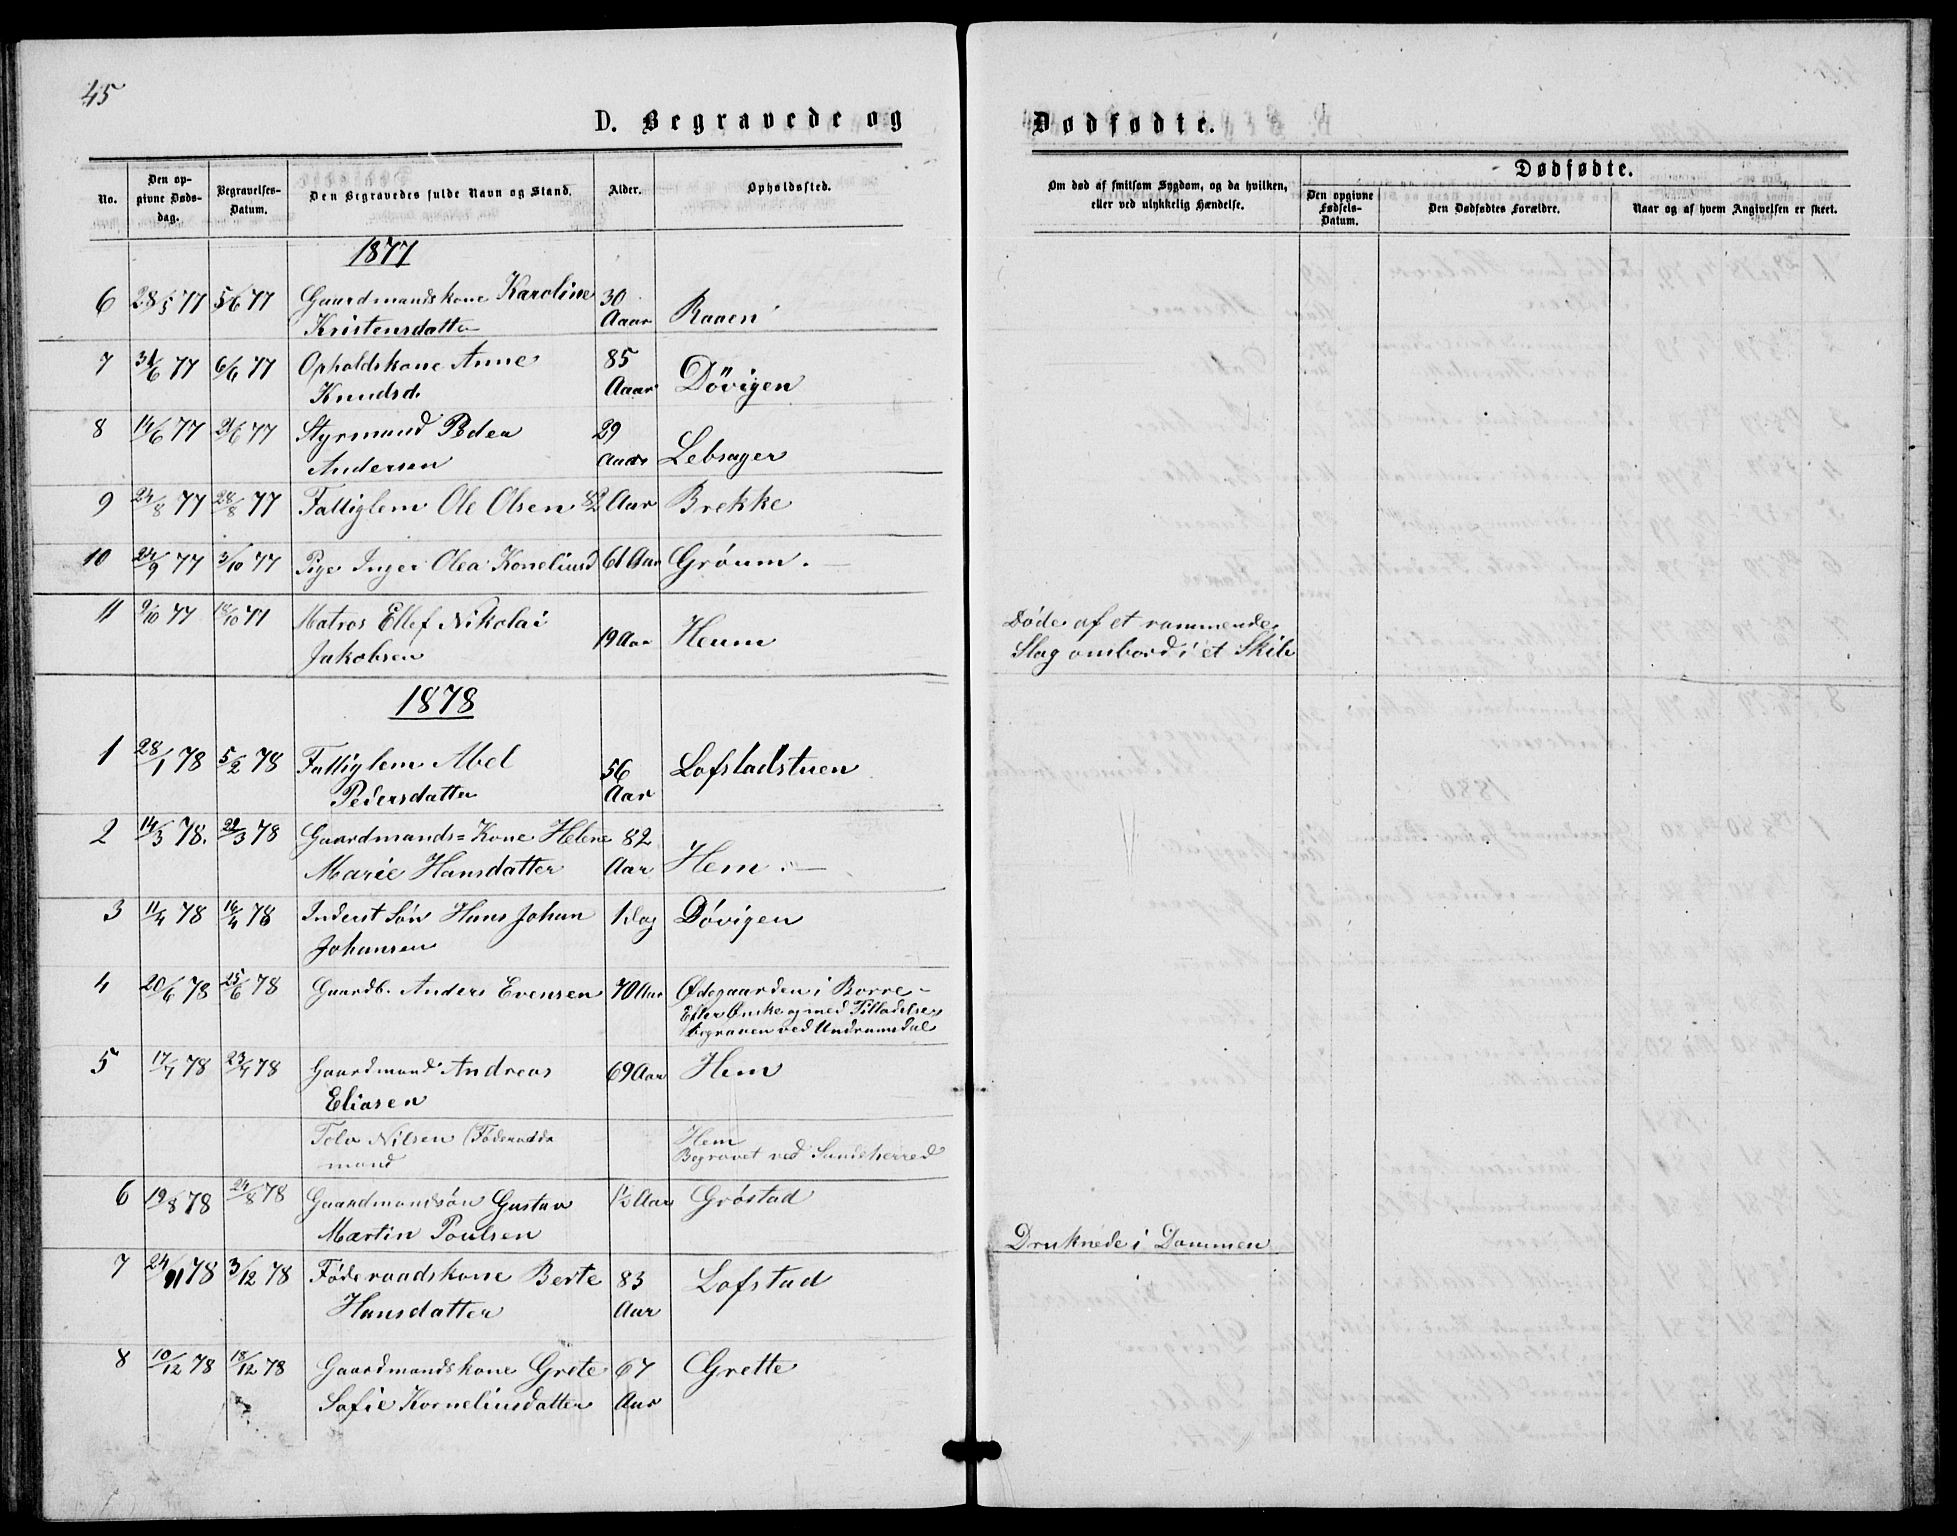 45
D. Begravede og
Dødfødte.
No.
Den op-
givne Døds-
dag.
Begravelses-
Datum.
Den Begravedes fulde Navn og Stand.
Alder.
Opholdssted.
Om død af smitsom Sygdom, og da hvilken,
eller ved ulykkelig Hændelse.
Dødfødte.
Den opgivne
Fødsels-
Datum.
Den Dødfødtes Forældre.
Naar og af hvem Angivelsen er skeet.
1877
6 28/5 77 5/6 77 Gaardmandskone Karoline 30
Kristensdatter Aaar Raaen
7 31/6 77 6/6 77 Opholdskone Anne 85
Knudsd. Aaar Dövigen
8 14/6 77 21/6 77 Styrmand Peder 29
Andersen Aaar Lebsager
9 24/8 77 28/8 77 Fattiglem Ole Olsen 82 Aar Brekke
10 24/9 77 3/10 77 Pige Inger Olea 61 Aar Gróum.
11 9/10 77 18/10 77 Matros Ellef Nikolai
Jakobsen 19 Aar Heum
Døde af et rammende
Slag ombord i et Skib
1878
1 28/1 78 5/2 78 Fattiglem Abel 56 Lofstadstuen
Pedersdatter Aar
2 14/3 78. 22/3 78 Gaardmands=Kone Helene 82
Marie Hansdatter Aar Hem.
3 11/4 78 16/4 78 Inderst Sön Hans Johan 1 dag Dóvigen
Johansen
4 20/6 78 25/6 78 Gaardb. Anders Evensen 70 Aar Ødegaarden i Borre-
Efter Ønske og med Tilladelse
begraven ved Undrumsdal
5 17/7 78 23/7 78 Gaardmand Andreas 69 Aar Hem
Eliasen
Nilsen (Föderaads Hem
mand Begravet ved Sandeherred
6 19/8 78 24/8 78 Gaardmandsön Gustav 1½ Aar Gróstad
Martin Poulsen
Druknede i Dammen
7 24/11 78 3/12 78 Föderaadskone Berte 83 Lofstad
Hansdatter Aar
8 10/12 78 18/12 78 Gaardmandskone Grete 67 Grette
Sofie Korneliusdatter Aar